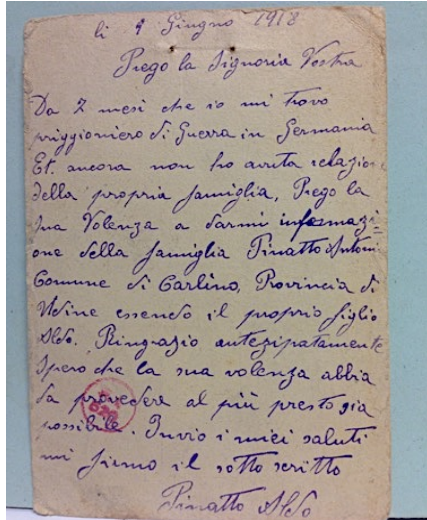 li 9 Giugno 1918
Prego la Signoria Vostra
Da 7 mesi che io mi trovo
priggioniero di Guerra in Germania
Et. ancora non ho avuta relazion
della propria famiglia, Prego la
sua Volenza a darmi informazi=
one della famiglia Pinatto Antoni
Comune di Carlino, Provincia di
Udine essendo il proprio figlio
Aldo. Ringrazio antezipatamente
Spero che la sua volenza abbia
da provedere al più presto gia
possibile. Invio i miei saluti
mi firmo il sotto scritto
Pinatto Aldo